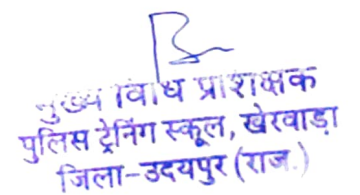 मुख्य विधि प्रशिक्षक
पुलिस ट्रेनिंग स्कूल, खेरवाड़ा
जिला-उदयपुर (राज.)